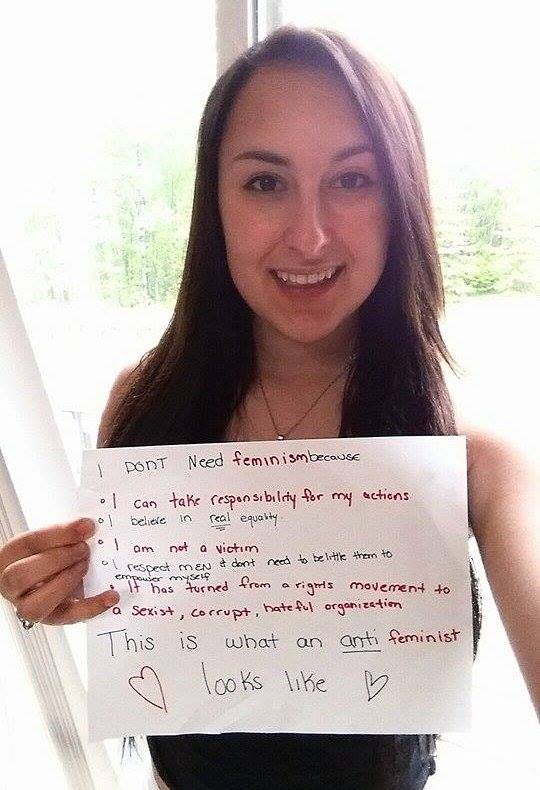 I DONT Need feminism because
I can take responsibility for my actions
I believe in real equality.
I am not a victim
I respect MEN & dont need to belittle them to
empower myself
It has turned from a rights movement to
a sexist, corrupt, hateful organization
This is what an anti feminist
looks like